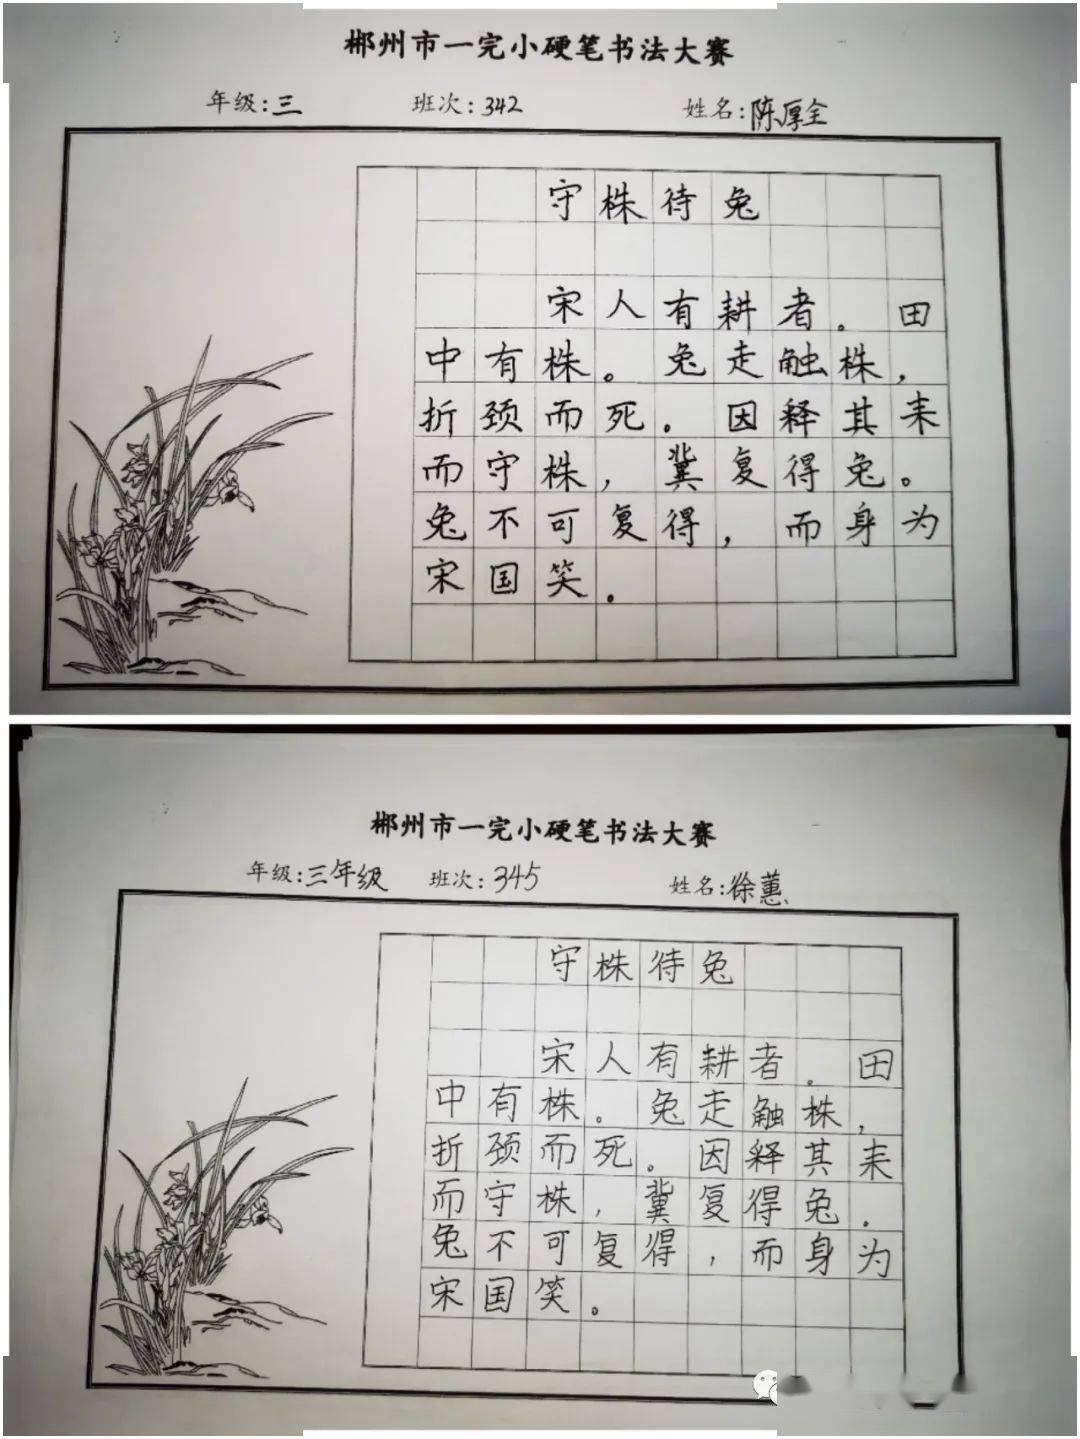 郴州市一完小硬笔书法大赛
年级:三 班次:342 姓名:陈厚全
守株待兔
宋人有耕者。田
中有株。兔走触株,
折颈而死。因释其耒
而守株,冀复得兔。
兔不可复得,而身为
宋国笑。
郴州市一完小硬笔书法大赛
年级:三年级 班次:345 姓名:徐蕙
守株待兔
宋人有耕者。田
中有株。兔走触株,
折颈而死。因释其耒
而守株,冀复得兔.
兔不可复得,而身为
宋国笑。